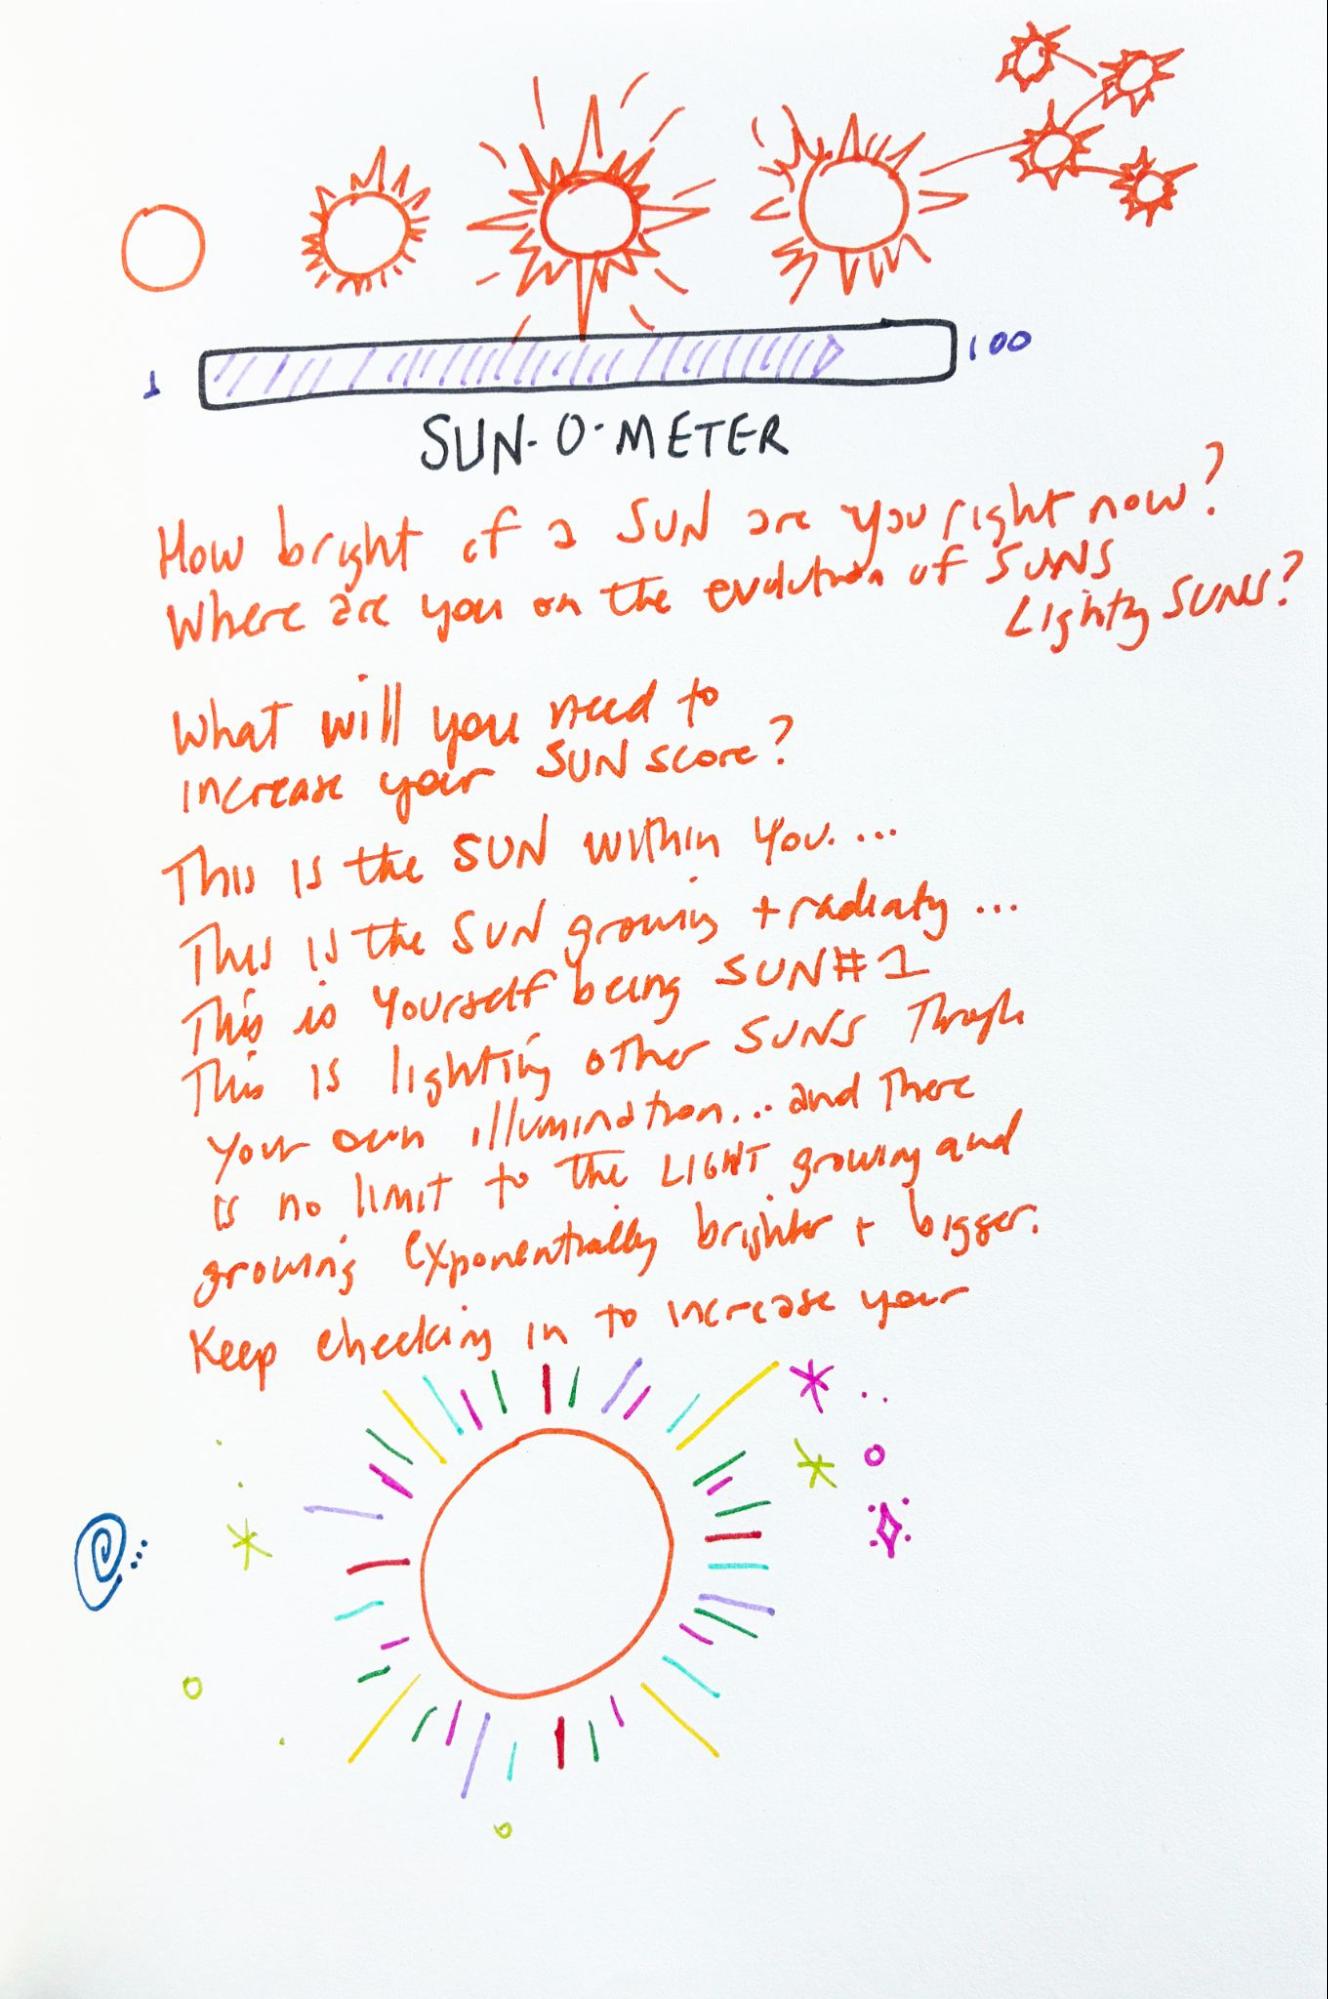 1
100
SUN-O-METER
How bright of a SUN are you right now?
Where are you on the evolution of SUNS
Lighty SUNS?
What will you need to
increase your SUN score?
This is the SUN within You....
This is the SUN growing + radiaty ...
This is Yourself being SUN#1
This is lighting other SUNS Through
your own illumination... and There
is no limit to the LIGHT growing and
growing exponentially brighter + bigger.
Keep checking in to increase your